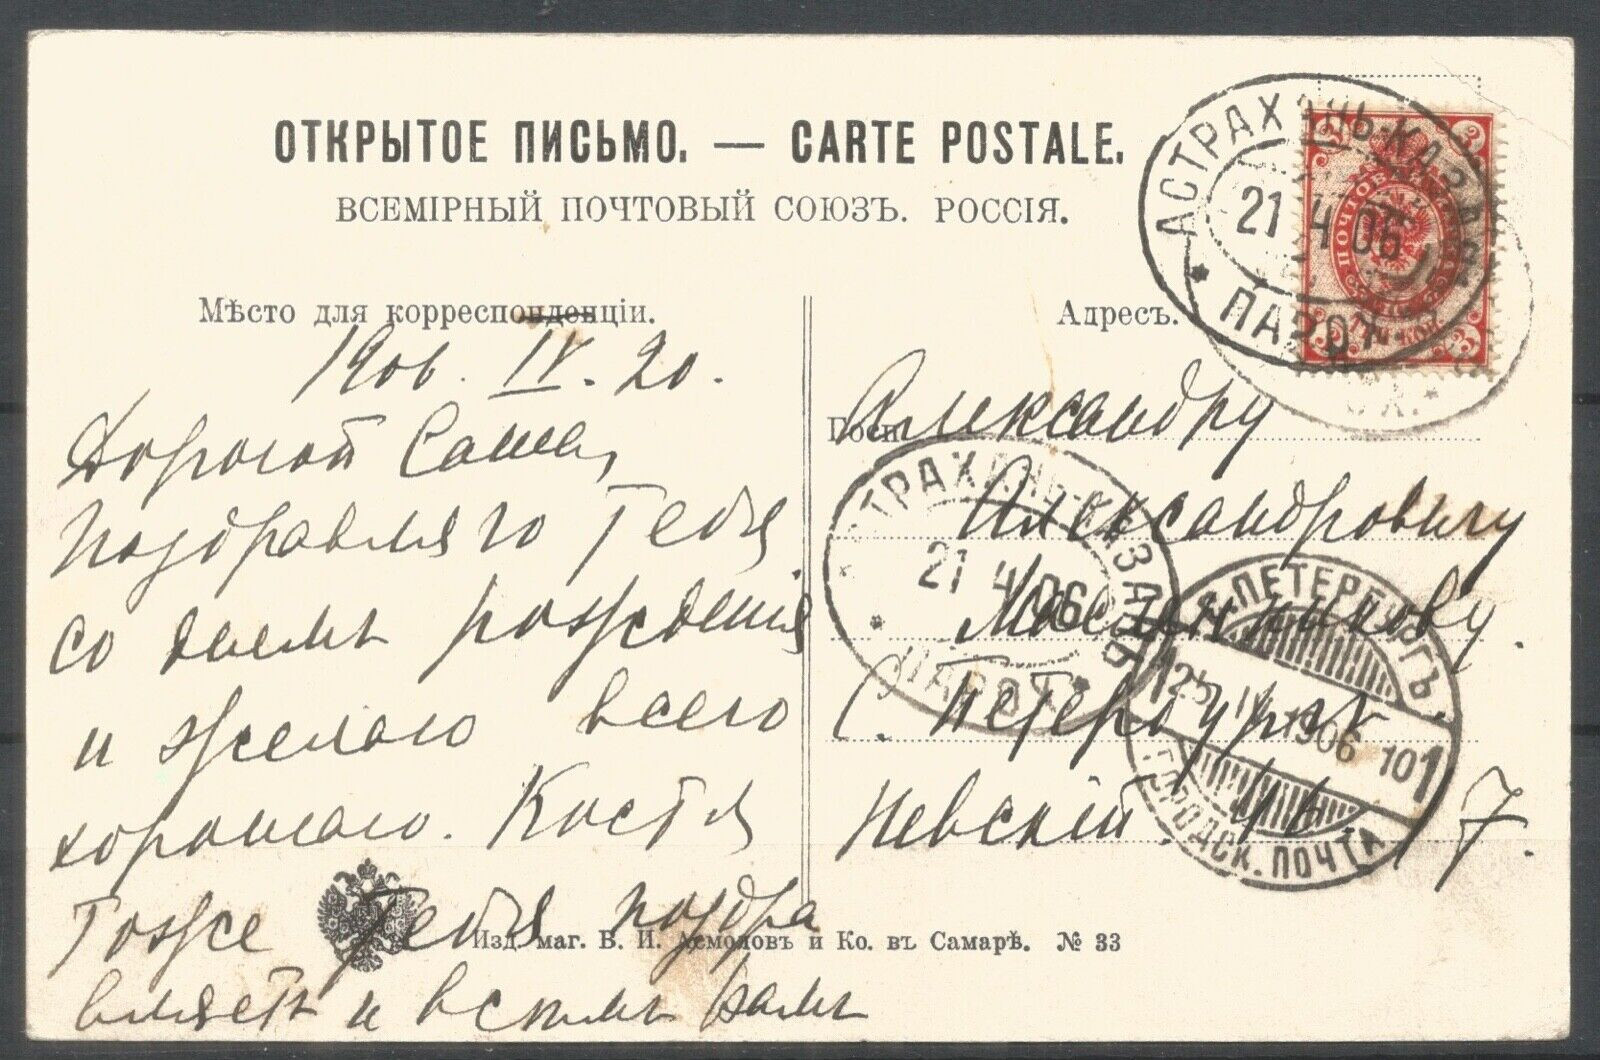 ОТКРЫТОЕ ПИСЬМО. — CARTE POSTALE.
ВСЕМІРНЫЙ ПОЧТОВЫЙ СОЮЗЪ. РОССІЯ.
Мѣсто для корреспонденціи.
1906. IV. 20.
Дорогой Саша,
поздравляю тебя
со днемъ рожденія
и желаю всего
хорошаго. Костя
тоже тебя поздра
вляетъ и всѣмъ вамъ
Адресъ.
Госп.
Александру
Александровичу
Масленникову.
С. Петербургъ
Невскій. 7.
АСТРАХАНЬ-КАЗАНЬ
21 4 06
ПАРОХ.
АСТРАХАНЬ-КАЗАНЬ
21 4 06
ПАРОХ.
С.ПЕТЕРБУРГЪ.
25 IV 1906 10
1 1
ГОРОДСК. ПОЧТА
3 3
3 3
Изд. маг. В. И. Асмоловъ и Ко. въ Самарѣ. № 33